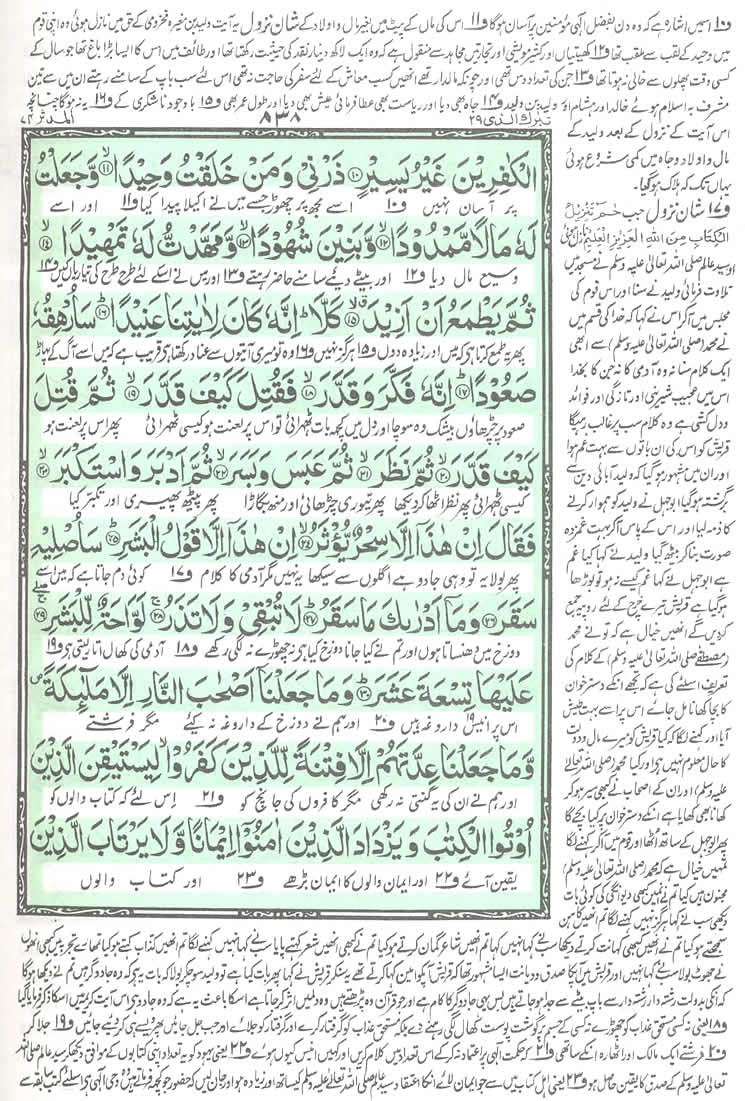 و۱۰ اسمیں اشارہ ہے کہ وہ دن بفضل الٰہی مؤمنین پر آسان ہوگا و۱۱ اس کی ماں کے پیٹ میں بغیر مال و اولاد کے شان نزول یہ آیت ولید بن مغیرہ مخزومی کے حق میں نازل ہوئی وہ اپنی قوم
میں وحید کے لقب سے ملقب تھا و۱۲ کھیتیاں اور کثیر مویشی اور تجارتیں مجاہد سے منقول ہے کہ وہ ایک لاکھ دینار نقد کی حیثیت رکھتا تھا اور طائف میں اس کا ایسا بڑا باغ تھا جو سال کے
کسی وقت پھلوں سے خالی نہ ہوتا تھا و۱۳ جن کی تعداد دس تھی اور چونکہ مالدار تھے انھیں کسب معاش کے لئے سفر کی حاجت نہ تھی اس لئے سب باپ کے سامنے رہتے ان میں سے تین
مشرف بہ اسلام ہوئے خالد اور ہشام اور ولید بن ولید و۱۴ جاہ بھی دیا اور ریاست بھی عطا فرمائی عیش بھی دیا اور طول عمر بھی و۱۵ باوجود ناشکری کے و۱۶ یہ نہ ہوگا چنانچہ
تبٰرك الذی ۲۹
۸۳۸
المدثر ۷۴
الْكٰفِرِيْنَ غَيْرُ يَسِيْرٍ ۱۰ ذَرْنِيْ وَمَنْ خَلَقْتُ وَحِيْدًا ۱۱ وَّجَعَلْتُ
پر آسان نہیں و۱۰ اسے مجھ پر چھوڑ جسے میں نے اکیلا پیدا کیا و۱۱ اور اسے
لَهٗ مَالًا مَّمْدُوْدًا ۱۲ وَّبَنِيْنَ شُهُوْدًا ۱۳ وَّمَهَّدْتُّ لَهٗ تَمْهِيْدًا ۱۴
وسیع مال دیا و۱۲ اور بیٹے دیئے سامنے حاضر رہتے و۱۳ اور میں نے اسکے لئے طرح طرح کی تیاریاں کیں و۱۴
ثُمَّ يَطْمَعُ اَنْ اَزِيْدَ ۱۵ كَلَّا اِنَّهٗ كَانَ لِاٰيٰتِنَا عَنِيْدًا ۱۶ سَاُرْهِقُهٗ
پھر یہ طمع کرتا ہی کہ میں اور زیادہ دوں و۱۵ ہرگز نہیں و۱۶ وہ تو میری آیتوں سے عناد رکھتا ہی قریب ہے کہ میں اسے آگ کے پہاڑ
صَعُوْدًا ۱۷ اِنَّهٗ فَكَّرَ وَقَدَّرَ ۱۸ فَقُتِلَ كَيْفَ قَدَّرَ ۱۹ ثُمَّ قُتِلَ
صعود پر چڑھاؤں بیشک وہ سوچا اور دل میں کچھ بات ٹھہرائی تو اس پر لعنت ہو کیسی ٹھہرائی پھر اس پر لعنت ہو
كَيْفَ قَدَّرَ ۲۰ ثُمَّ نَظَرَ ۲۱ ثُمَّ عَبَسَ وَبَسَرَ ۲۲ ثُمَّ اَدْبَرَ وَاسْتَكْبَرَ ۲۳
کیسی ٹھہرائی پھر نظر اٹھا کر دیکھا پھر تیوری چڑھائی اور منھ بگاڑا پھر پیٹھ پھیری اور تکبر کیا
فَقَالَ اِنْ هٰذَا اِلَّا سِحْرٌ يُّؤْثَرُ ۲۴ اِنْ هٰذَا اِلَّا قَوْلُ الْبَشَرِ ۲۵ سَاُصْلِيْهِ
پھر بولا یہ تو وہی جادو ہے اگلوں سے سیکھا یہ نہیں مگر آدمی کا کلام و۱۷ کوئی دم جاتا ہے کہ میں اسے
سَقَرَ ۲۶ وَمَآ اَدْرٰىكَ مَا سَقَرُ ۲۷ لَا تُبْقِيْ وَلَا تَذَرُ ۲۸ لَوَّاحَةٌ لِّلْبَشَرِ ۲۹
دوزخ میں دھنساتا ہوں اور تم نے کیا جانا دوزخ کیا ہی نہ چھوڑے نہ لگی رکھے و۱۸ آدمی کی کھال اتار لیتی ہی و۱۹
عَلَيْهَا تِسْعَةَ عَشَرَ ۳۰ وَمَا جَعَلْنَآ اَصْحٰبَ النَّارِ اِلَّا مَلٰٓئِكَةً
اس پر انیس داروغہ ہیں و۲۰ اور ہم نے دوزخ کے داروغہ نہ کیئے مگر فرشتے
وَّمَا جَعَلْنَا عِدَّتَهُمْ اِلَّا فِتْنَةً لِّلَّذِيْنَ كَفَرُوْا لِيَسْتَيْقِنَ الَّذِيْنَ
اور ہم نے ان کی یہ گنتی نہ رکھی مگر کافروں کی جانچ کو و۲۱ اس لئے کہ کتاب والوں کو
اُوْتُوا الْكِتٰبَ وَيَزْدَادَ الَّذِيْنَ اٰمَنُوْٓا اِيْمَانًا وَّلَا يَرْتَابَ الَّذِيْنَ
یقین آئے و۲۲ اور ایمان والوں کا ایمان بڑھے و۲۳ اور کتاب والوں
اس آیت کے نزول کے بعد ولید کے
مال و اولاد و جاہ میں کمی شروع ہوئی
یہاں تک کہ ہلاک ہوگیا۔
و۱۷ شان نزول جب حٰمٓ تَنْزِيْلُ
الْكِتَابِ مِنَ اللهِ الْعَزِيْزِ الْعَلِيْمِ نازل ہوئی
اور سید عالم صلی اللہ تعالیٰ علیہ وسلم نے مسجد میں
تلاوت فرمائی ولید نے سنا اور اس قوم کی
مجلس میں آکر اس نے کہا کہ خدا کی قسم میں
نے محمد (صلی اللہ تعالیٰ علیہ وسلم) سے ابھی
ایک کلام سنا نہ وہ آدمی کا نہ جن کا بخدا
اس میں عجیب شیرینی اور تازگی اور فوائد
و دل کشی ہے وہ کلام سب پر غالب رہیگا
قریش کو اس کی ان باتوں سے بہت غم ہوا
اور ان میں مشہور ہوگیا کہ ولید آبائی دین سے
برگشتہ ہوگیا ابوجہل نے ولید کو ہموار کرنے
کا ذمہ لیا اور اس کے پاس آکر بہت غمزدہ
صورت بنا کر بیٹھ گیا ولید نے کہا کیا غم
ہے ابوجہل نے کہا غم کیسے نہ ہو تو بوڑھا
ہوگیا ہے قریش تیرے خرچ کے لئے روپیہ جمع
کردیں گے انھیں خیال ہے کہ تو نے محمد
(مصطفےٰ صلی اللہ تعالیٰ علیہ وسلم) کے کلام کی
تعریف اسلئے کی ہے کہ تجھے انکے دسترخوان
کا بچا کھانا مل جائے اس پر اسے بہت طیش
آیا اور کہنے لگا کہ کیا قریش کو میرے مال و دولت
کا حال معلوم نہیں ہے اور کیا محمد (صلی اللہ تعالیٰ
علیہ وسلم) اور ان کے اصحاب نے کبھی سیر ہوکر
کھانا بھی کھایا ہے انکے دسترخوان پر کیا بچے گا
پھر ابوجہل کے ساتھ اٹھا اور قوم میں آکر کہنے لگا
تمہیں خیال ہے کہ محمد (صلی اللہ تعالیٰ علیہ وسلم)
مجنون ہیں کیا تم نے انہیں کبھی دیوانگی کی کوئی بات
دیکھی سب نے کہا ہرگز نہیں کہنے لگا تم انھیں کاہن
سمجھتے ہو کیا تم نے انھیں کبھی کہانت کرتے دیکھا سب نے کہا نہیں کہا تم انھیں شاعر گمان کرتے ہو کیا تم نے کبھی انھیں شعر کہتے پایا سب نے کہا نہیں کہنے لگا تم انھیں کذاب کہتے ہو کیا تمہارے تجربہ میں کبھی انھوں
نے جھوٹ بولا سب نے کہا نہیں اور قریش میں آپکا صدق و دیانت ایسا مشہور تھا کہ قریش آپکو امین کہا کرتے تھے یہ سنکر قریش نے کہا پھر بات کیا ہے تو ولید سوچکر بولا کہ بات یہ ہے کہ وہ جادوگر ہیں تم نے دیکھا ہوگا
کہ انکی بدولت رشتہ دار رشتہ دار سے باپ بیٹے سے جدا ہوجاتے ہیں بس یہی جادوگر کا کام ہے اور جو قرآن وہ پڑھتے ہیں وہ دل میں اثر کر جاتا ہے اسکا باعث یہ ہے کہ وہ جادو ہی اس آیت کریمہ میں اسکا ذکر فرمایا گیا
و۱۸ یعنی نہ کسی مستحق عذاب کو چھوڑے نہ کسی کے جسم پر گوشت پوست کھال لگی رہنے دے بلکہ مستحق عذاب کو گرفتار کرے اور گرفتار کو جلائے اور جب جل جائیں پھر ویسے ہی کردیئے جائیں و۱۹ جلا کر
و۲۰ فرشتے ایک مالک اور اٹھارہ انکے ساتھی و۲۱ کہ حکمت الٰہی پر اعتماد نہ کرکے اس تعداد میں کلام کریں اور کہیں انیس کیوں ہوئے و۲۲ یعنی یہود کو یہ تعداد اپنی کتابوں کے موافق دیکھکر سید عالم صلی اللہ
تعالیٰ علیہ وسلم کے صدق کا یقین حاصل ہو و۲۳ یعنی اہل کتاب میں سے جو ایمان لائے انکا اعتقاد سید عالم صلی اللہ تعالیٰ علیہ وسلم کیساتھ اور زیادہ ہو اور جان لیں کہ حضور جو کچھ فرماتے ہیں وہ وحی الٰہی ہی اسلئے کتب سابقہ سے